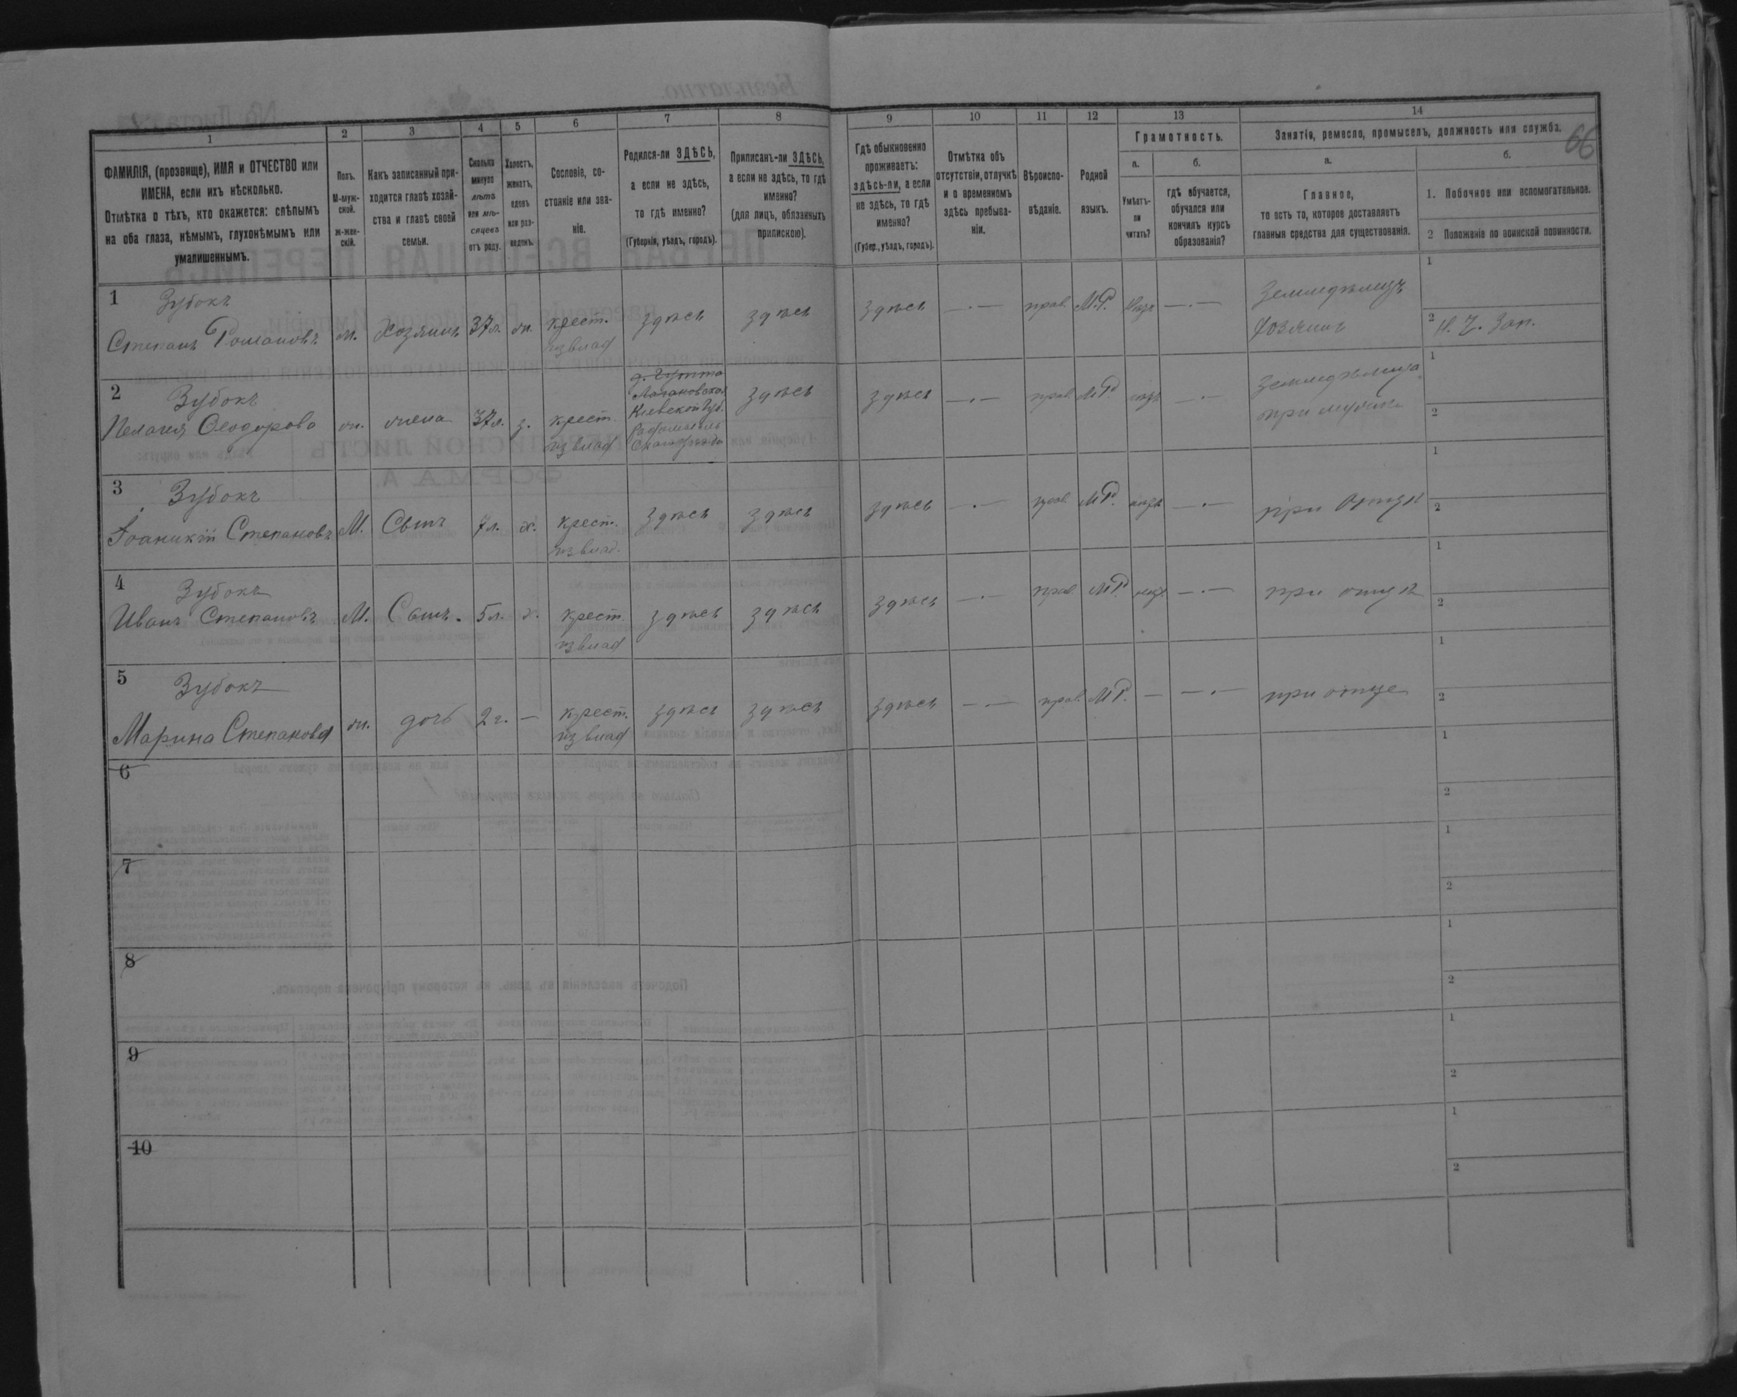 66
1
2
3
4
5
6
7
8
9
10
11
12
13
14
ФАМИЛІЯ, (прозвище), ИМЯ и ОТЧЕСТВО или
ИМЕНА, если ихъ нѣсколько.
Отмѣтка о тѣхъ, кто окажется: слѣпымъ
на оба глаза, нѣмымъ, глухонѣмымъ или
умалишеннымъ.
Полъ.
М-муж-
ской.
Ж-жен-
скій.
Какъ записанный при-
ходится главѣ хозяй-
ства и главѣ своей
семьи.
Сколько
минуло
лѣтъ
или мѣ-
сяцевъ
отъ роду.
Холостъ,
женатъ,
вдовъ
или раз-
веденъ.
Сословіе, со-
стояніе или зва-
ніе.
Родился-ли ЗДѢСЬ,
а если не здѣсь,
то гдѣ именно?
(Губернія, уѣздъ, городъ).
Приписанъ-ли ЗДѢСЬ,
а если не здѣсь, то гдѣ
именно?
(для лицъ, обязанныхъ
припискою).
Гдѣ обыкновенно
проживаетъ:
здѣсь-ли, а если
не здѣсь, то гдѣ
именно?
(Губер., уѣздъ, городъ).
Отмѣтка объ
отсутствіи, отлучкѣ
и о временномъ
здѣсь пребыва-
ніи.
Вѣроиспо-
вѣданіе.
Родной
языкъ.
Грамотность.
а.
Умѣетъ-
ли
читать?
б.
гдѣ обучается,
обучался или
кончилъ курсъ
образованія?
Занятіе, ремесло, промыселъ, должность или служба.
а.
Главное,
то есть то, которое доставляетъ
главныя средства для существованія.
б.
1. Побочное или вспомогательное.
2 Положеніе по воинской повинности.
1 Зубокъ
Степанъ Романовъ м. хозяинъ 37л. ж. крест. из влад здѣсь здѣсь здѣсь —·— прав. М.Р. —·— Земледѣлецъ хозяинъ
1
2 Н. Ч. Зап.
2 Зубокъ
Пелагея Ѳеодорова ж. жена 37л. з. крест. из влад
Кіевской Губ.
здѣсь здѣсь —·— прав М.Р. —·— при мужѣ
1
2
3 Зубокъ
Іоаникій Степановъ М. Сынъ 7л. х. крест. из влад. здѣсь здѣсь здѣсь —·— прав. М.Р. —·— при отцѣ
1
2
4 Зубокъ
Иванъ Степановъ М. Сынъ. 5л. х. крест. из влад здѣсь здѣсь здѣсь —·— прав М.Р. —·— при отцѣ
1
2
5 Зубокъ
Марина Степанова ж. дочь 2г. — крест. из влад здѣсь здѣсь здѣсь —·— прав. М.Р. — —·— при отце
1
2
6
1
2
7
1
2
8
1
2
9
1
2
10
1
2